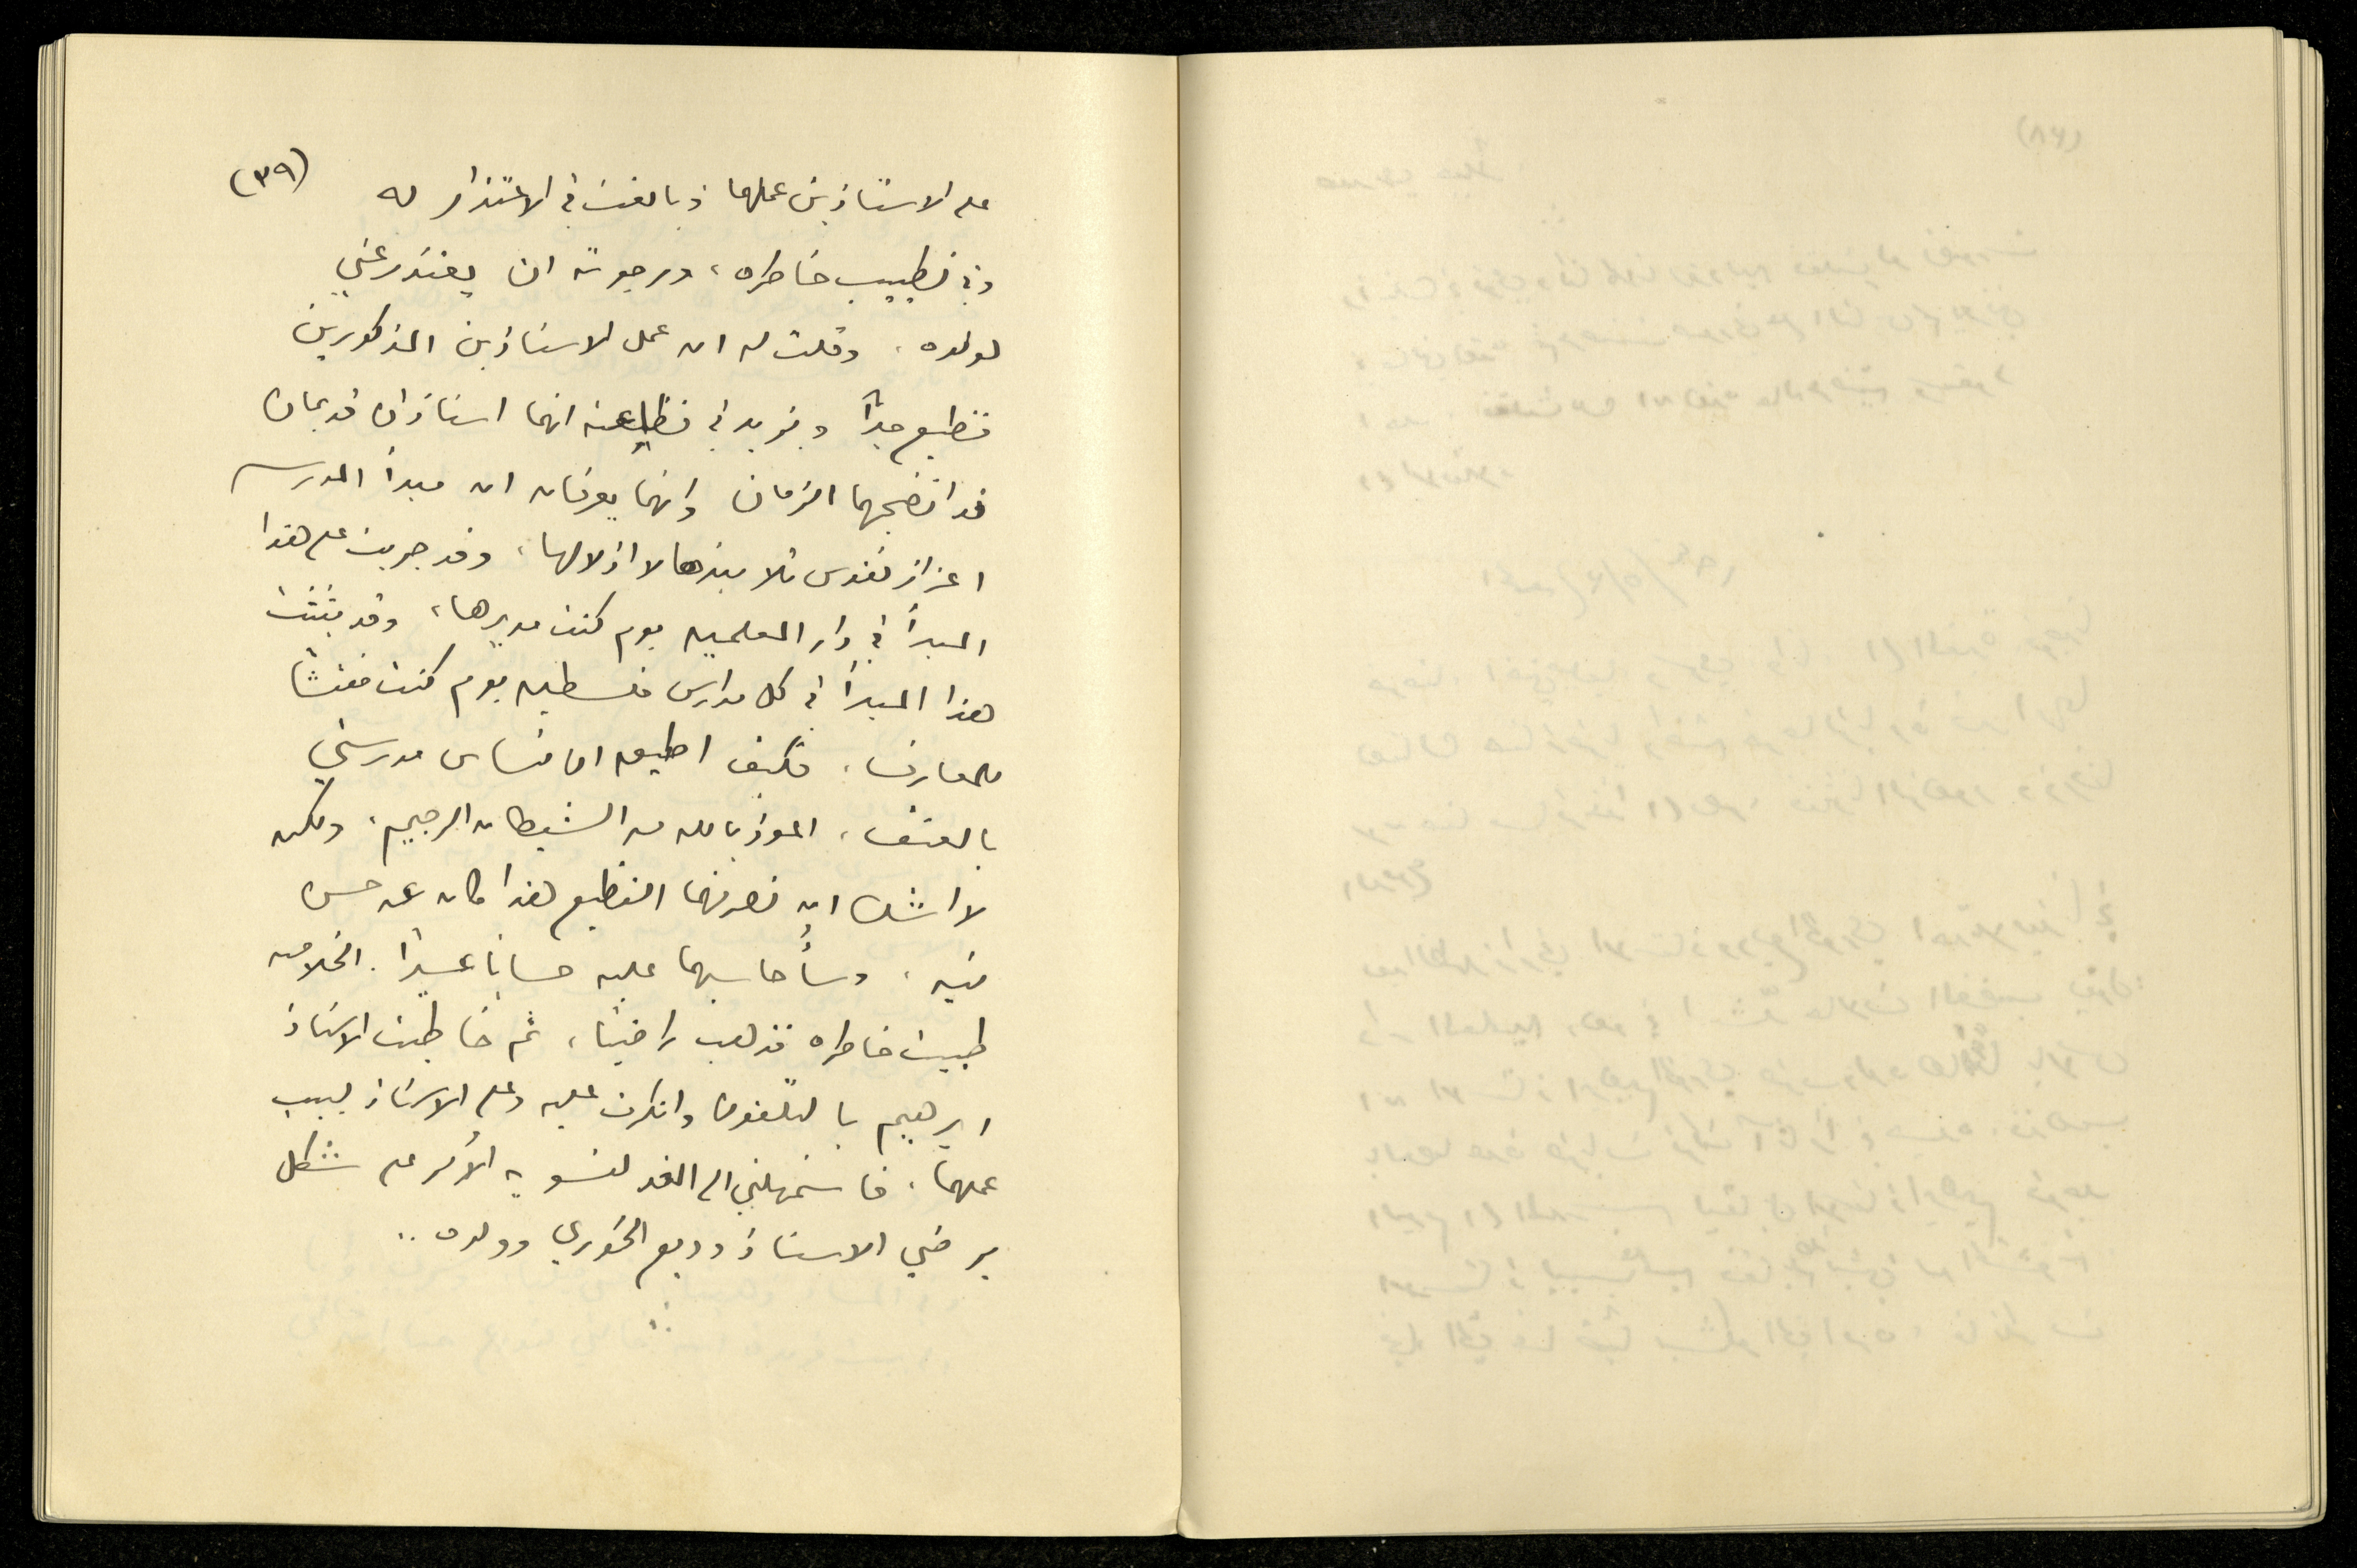 (٣٩)
على الاستاذين عملهما وبالغت في الاعتذار له
وفي تطييب خاطره، ورجوته ان يعتذر عني
لولده. وقلت له ان عمل الاستاذين المذكورين
فظيع جداً ويزيد في فظاعته انهما استاذان قديمان
قد انضجهما الزمان وانهما يعرفان ان مبدأ المدرسه
اعزاز نفوس تلاميذها لا اذلالها، وقد جريت على هذا
المبدأ في دار المعلمين يوم كنت مديرها، وقد بثثت
هذا المبدأ في كل مدارس فلسطين يوم كنت مفتشا
للمعارف، فكيف اطيق ان تساس مدرستي
بالعنف، اعوذ بالله من الشيطان الرجيم، ولكن
لا اشك ان تصرفهما الفظيع هذا كان عن حسن
نيه، وسأحاسبهما عليه حسابا عسيرا. الخلاصه
طيبت خاطره فذهب راضيا، ثم خاطبت الاستاذ
ابرهيم بالتلفون وانكرت عليه وعلى الاستاذ لبيب
عملهما، فاستمهلني الى الغد لتسوية الأمر على شكل
يرضي الاستاذ وديع الخوري وولده..